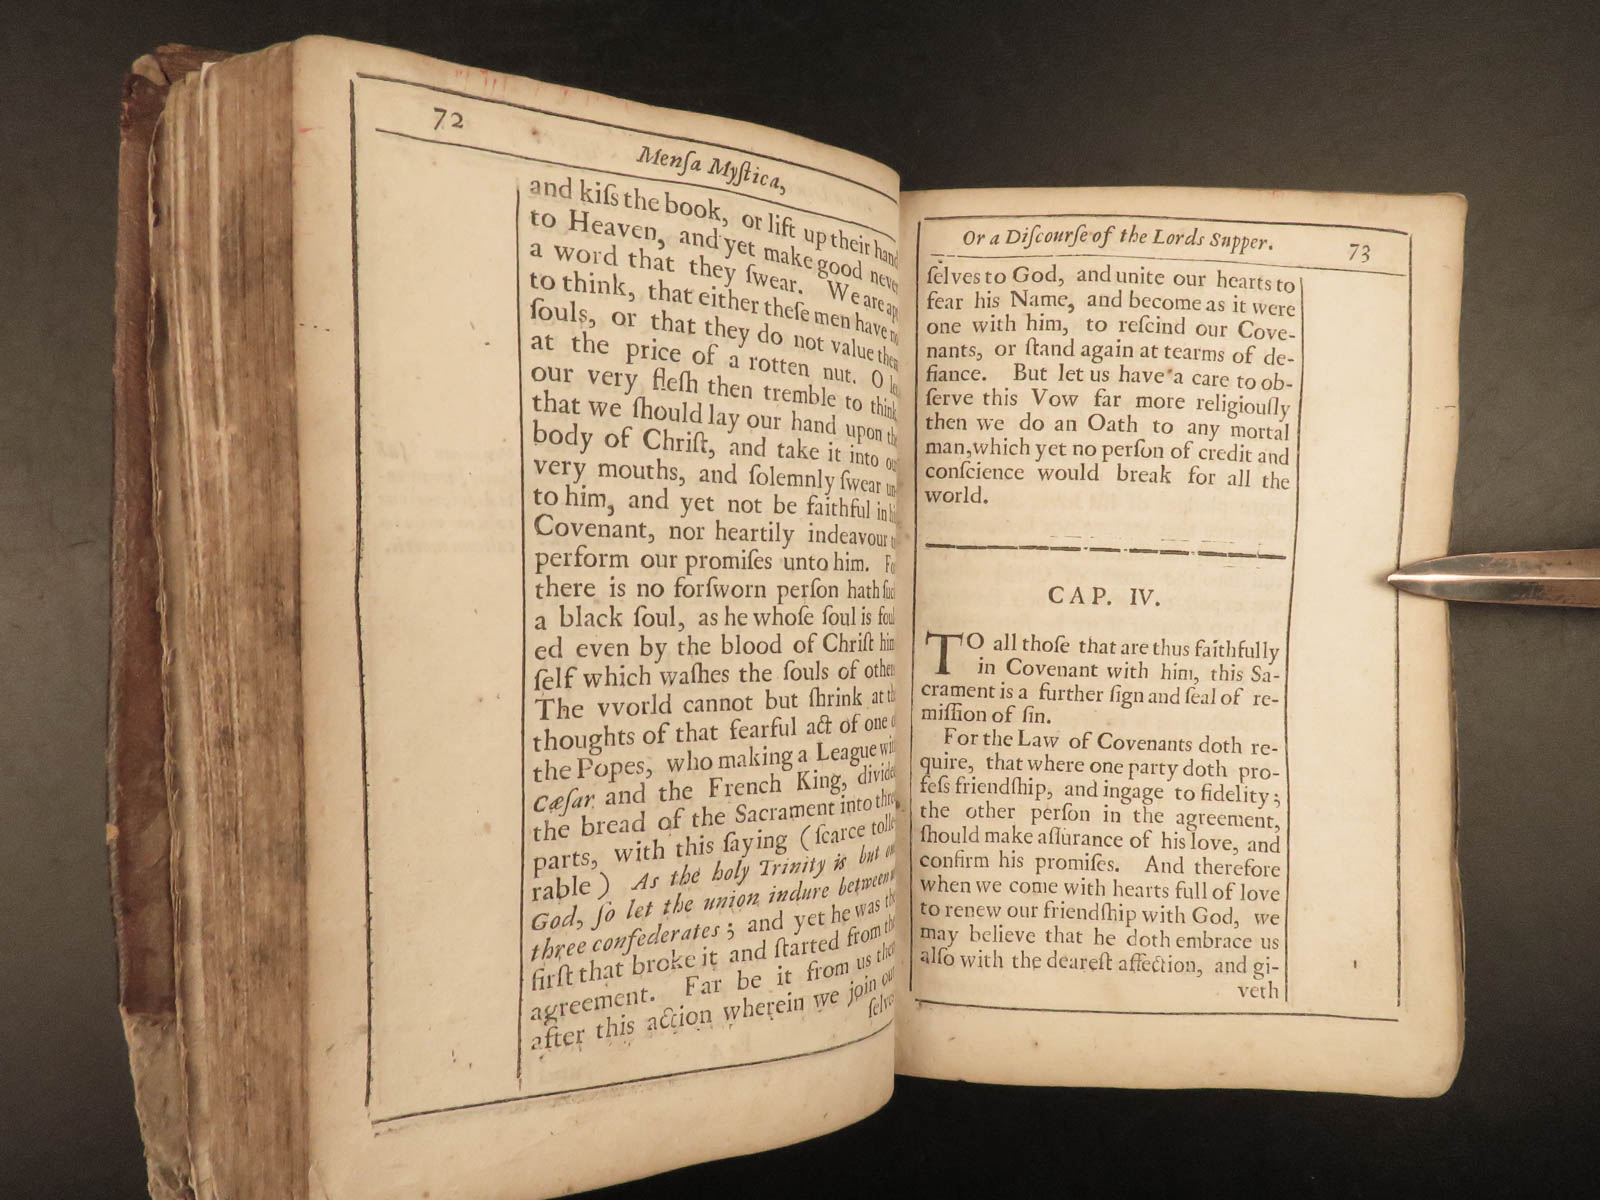 72
Menſa Myſtica,
and kiſs the book, or lift up their hand
to Heaven, and yet make good never
a word that they ſwear. We are apt
to think, that either theſe men have no
ſouls, or that they do not value them
at the price of a rotten nut. O
our very fleſh then tremble to think
that we ſhould lay our hand upon the
body of Chriſt, and take it into our
very mouths, and ſolemnly ſwear un-
to him, and yet not be faithful in his
Covenant, nor heartily indeavour to
perform our promiſes unto him. For
there is no forſworn perſon hath ſuch
a black ſoul, as he whoſe ſoul is foul
ed even by the blood of Chriſt him
ſelf which waſhes the ſouls of others
The vvorld cannot but ſhrink at the
thoughts of that fearful act of one of
the Popes, who making a League with
Cæſar and the French King, divided
the bread of the Sacrament into three
parts, with this ſaying (ſcarce tolle
rable) As the holy Trinity is but one
God, ſo let the union indure between us
three confederates; and yet he was the
firſt that broke it and ſtarted from the
agreement. Far be it from us then
after this action wherein we join our
ſelves
Or a Diſcourſe of the Lords Supper.
73
ſelves to God, and unite our hearts to
fear his Name, and become as it were
one with him, to reſcind our Cove-
nants, or ſtand again at tearms of de-
fiance. But let us have a care to ob-
ſerve this Vow far more religiouſly
then we do an Oath to any mortal
man, which yet no perſon of credit and
conſcience would break for all the
world.
CAP. IV.
TO all thoſe that are thus faithfully
in Covenant with him, this Sa-
crament is a further ſign and ſeal of re-
miſſion of ſin.
For the Law of Covenants doth re-
quire, that where one party doth pro-
feſs friendſhip, and ingage to fidelity;
the other perſon in the agreement,
ſhould make aſſurance of his love, and
confirm his promiſes. And therefore
when we come with hearts full of love
to renew our friendſhip with God, we
may believe that he doth embrace us
alſo with the deareſt affection, and gi-
veth